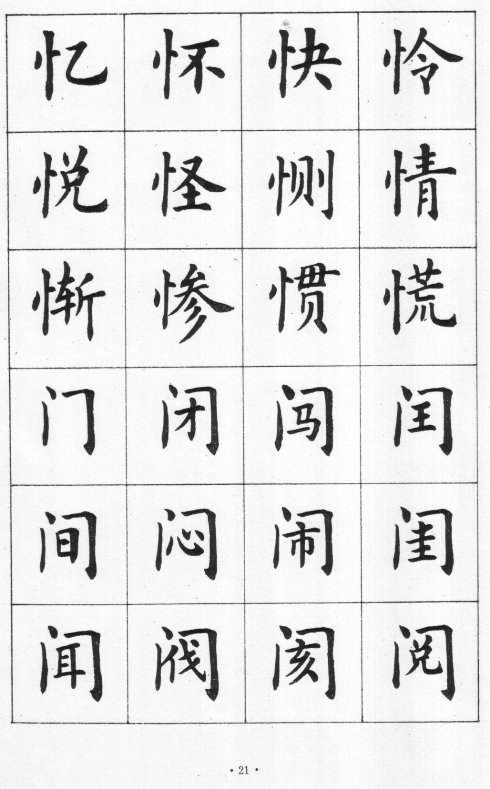 忆怀快怜
悦怪恻情
惭惨惯慌
门闭闯闰
间闷闹闺
闻阀阂阅
·21·